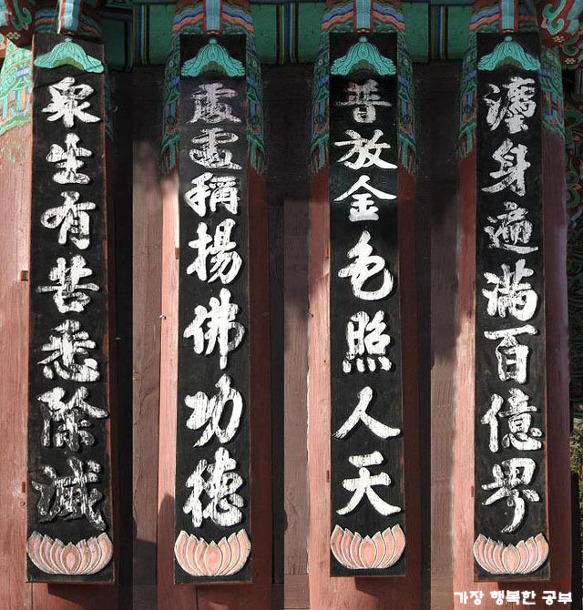 灋身遍滿百億界
普放金色照人天
處處稱揚佛功德
衆生有苦悉除滅
가장 행복한 공부